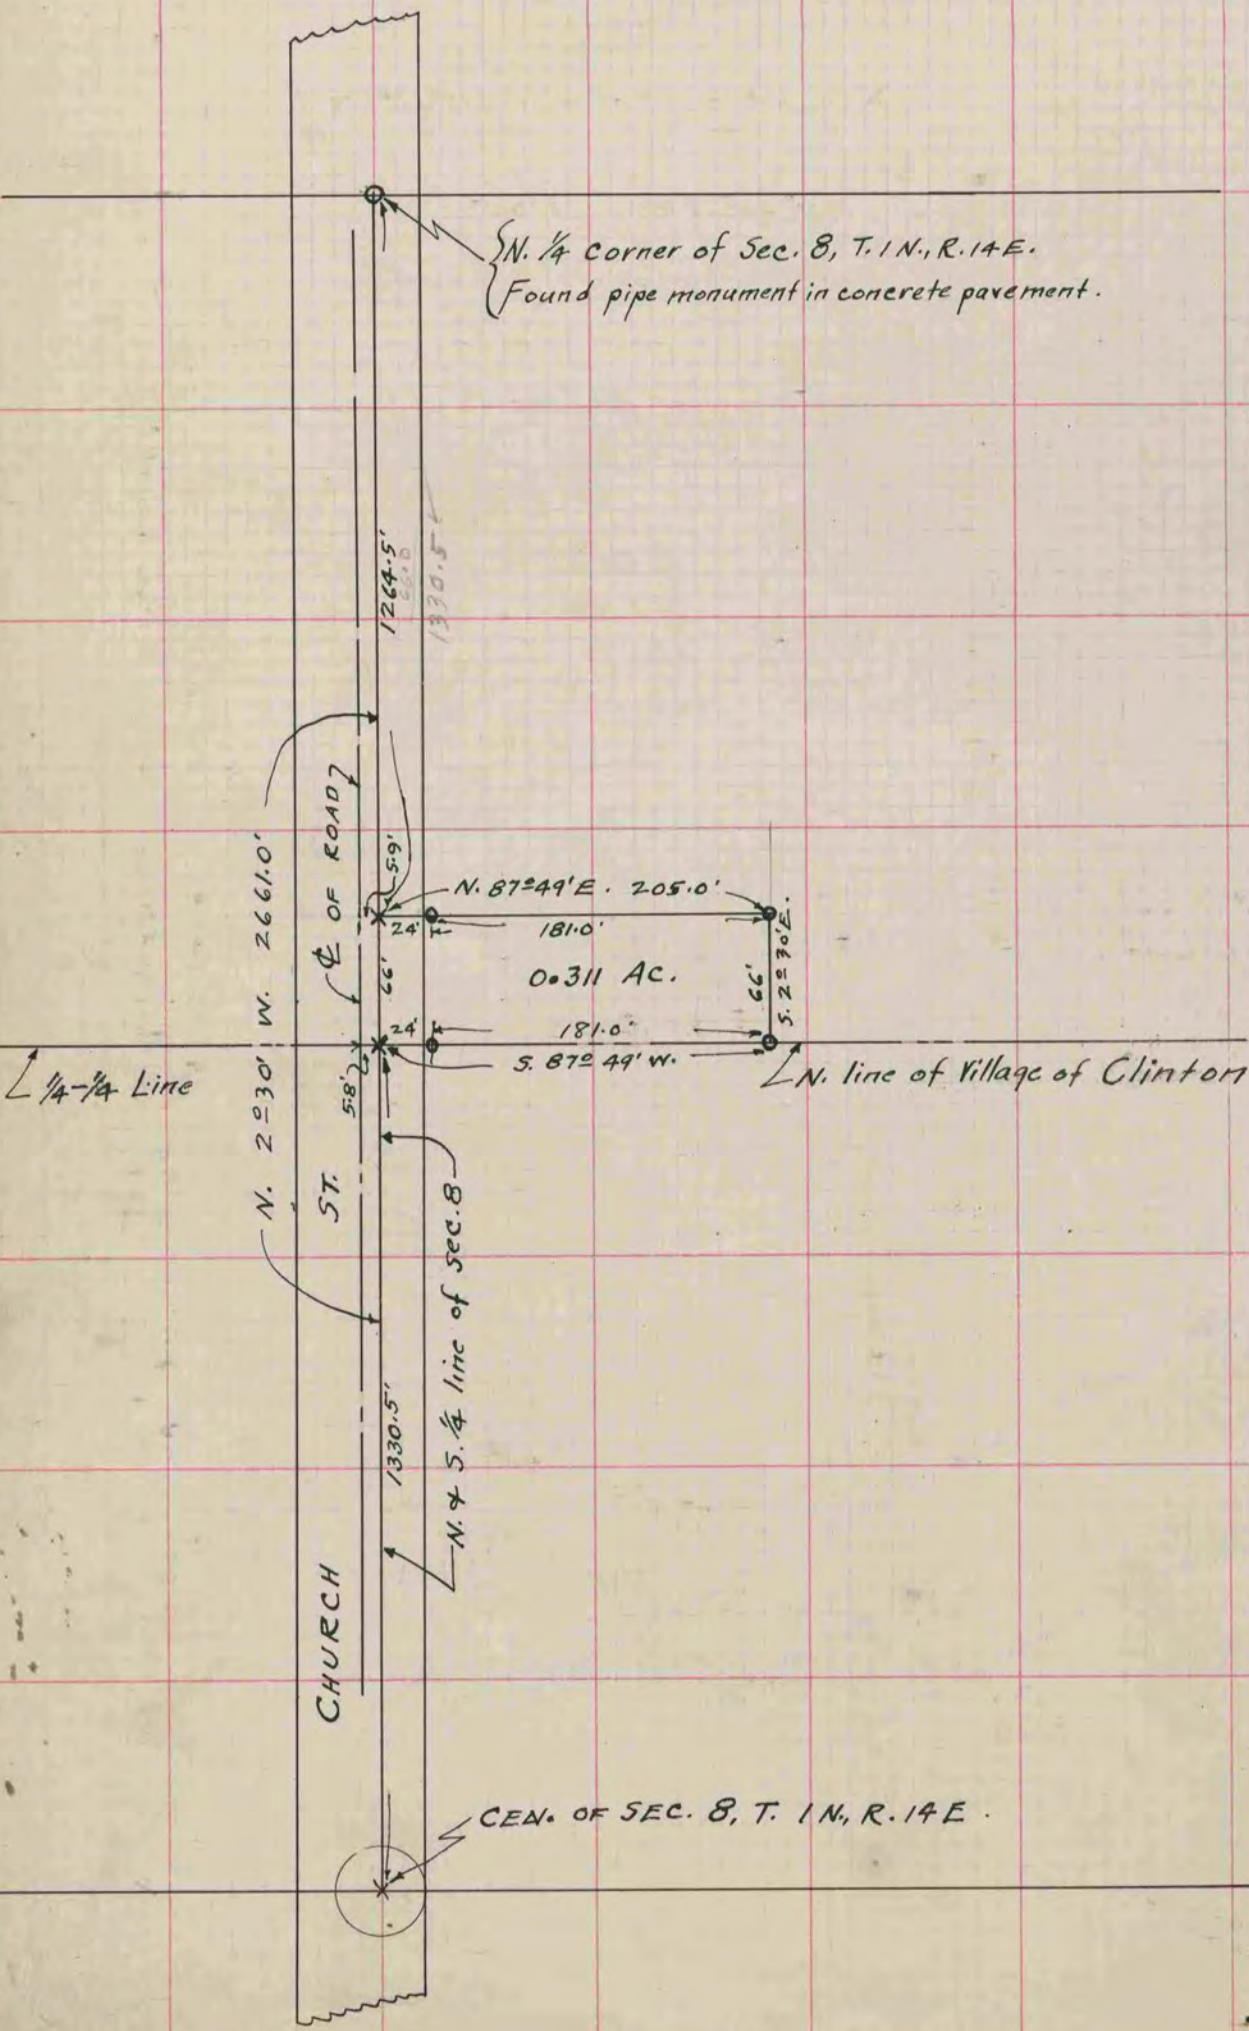 N. 1/4 corner of Sec. 8, T. 1 N., R. 14 E.
Found pipe monument in concrete pavement.
1264.5'
66.0
1330.5
N. 2º30' W. 2661.0'
℄ OF ROAD
5.9'
N. 87º49' E. 205.0'
24'
181.0'
66'
0.311 AC.
66'
S. 2º30' E.
24'
181.0'
S. 87º 49' W.
1/4-1/4 Line
5.8'
N. line of Village of Clinton
CHURCH ST.
N. & S. 1/4 line of Sec. 8
1330.5'
CEN. OF SEC. 8, T. 1 N., R. 14 E.